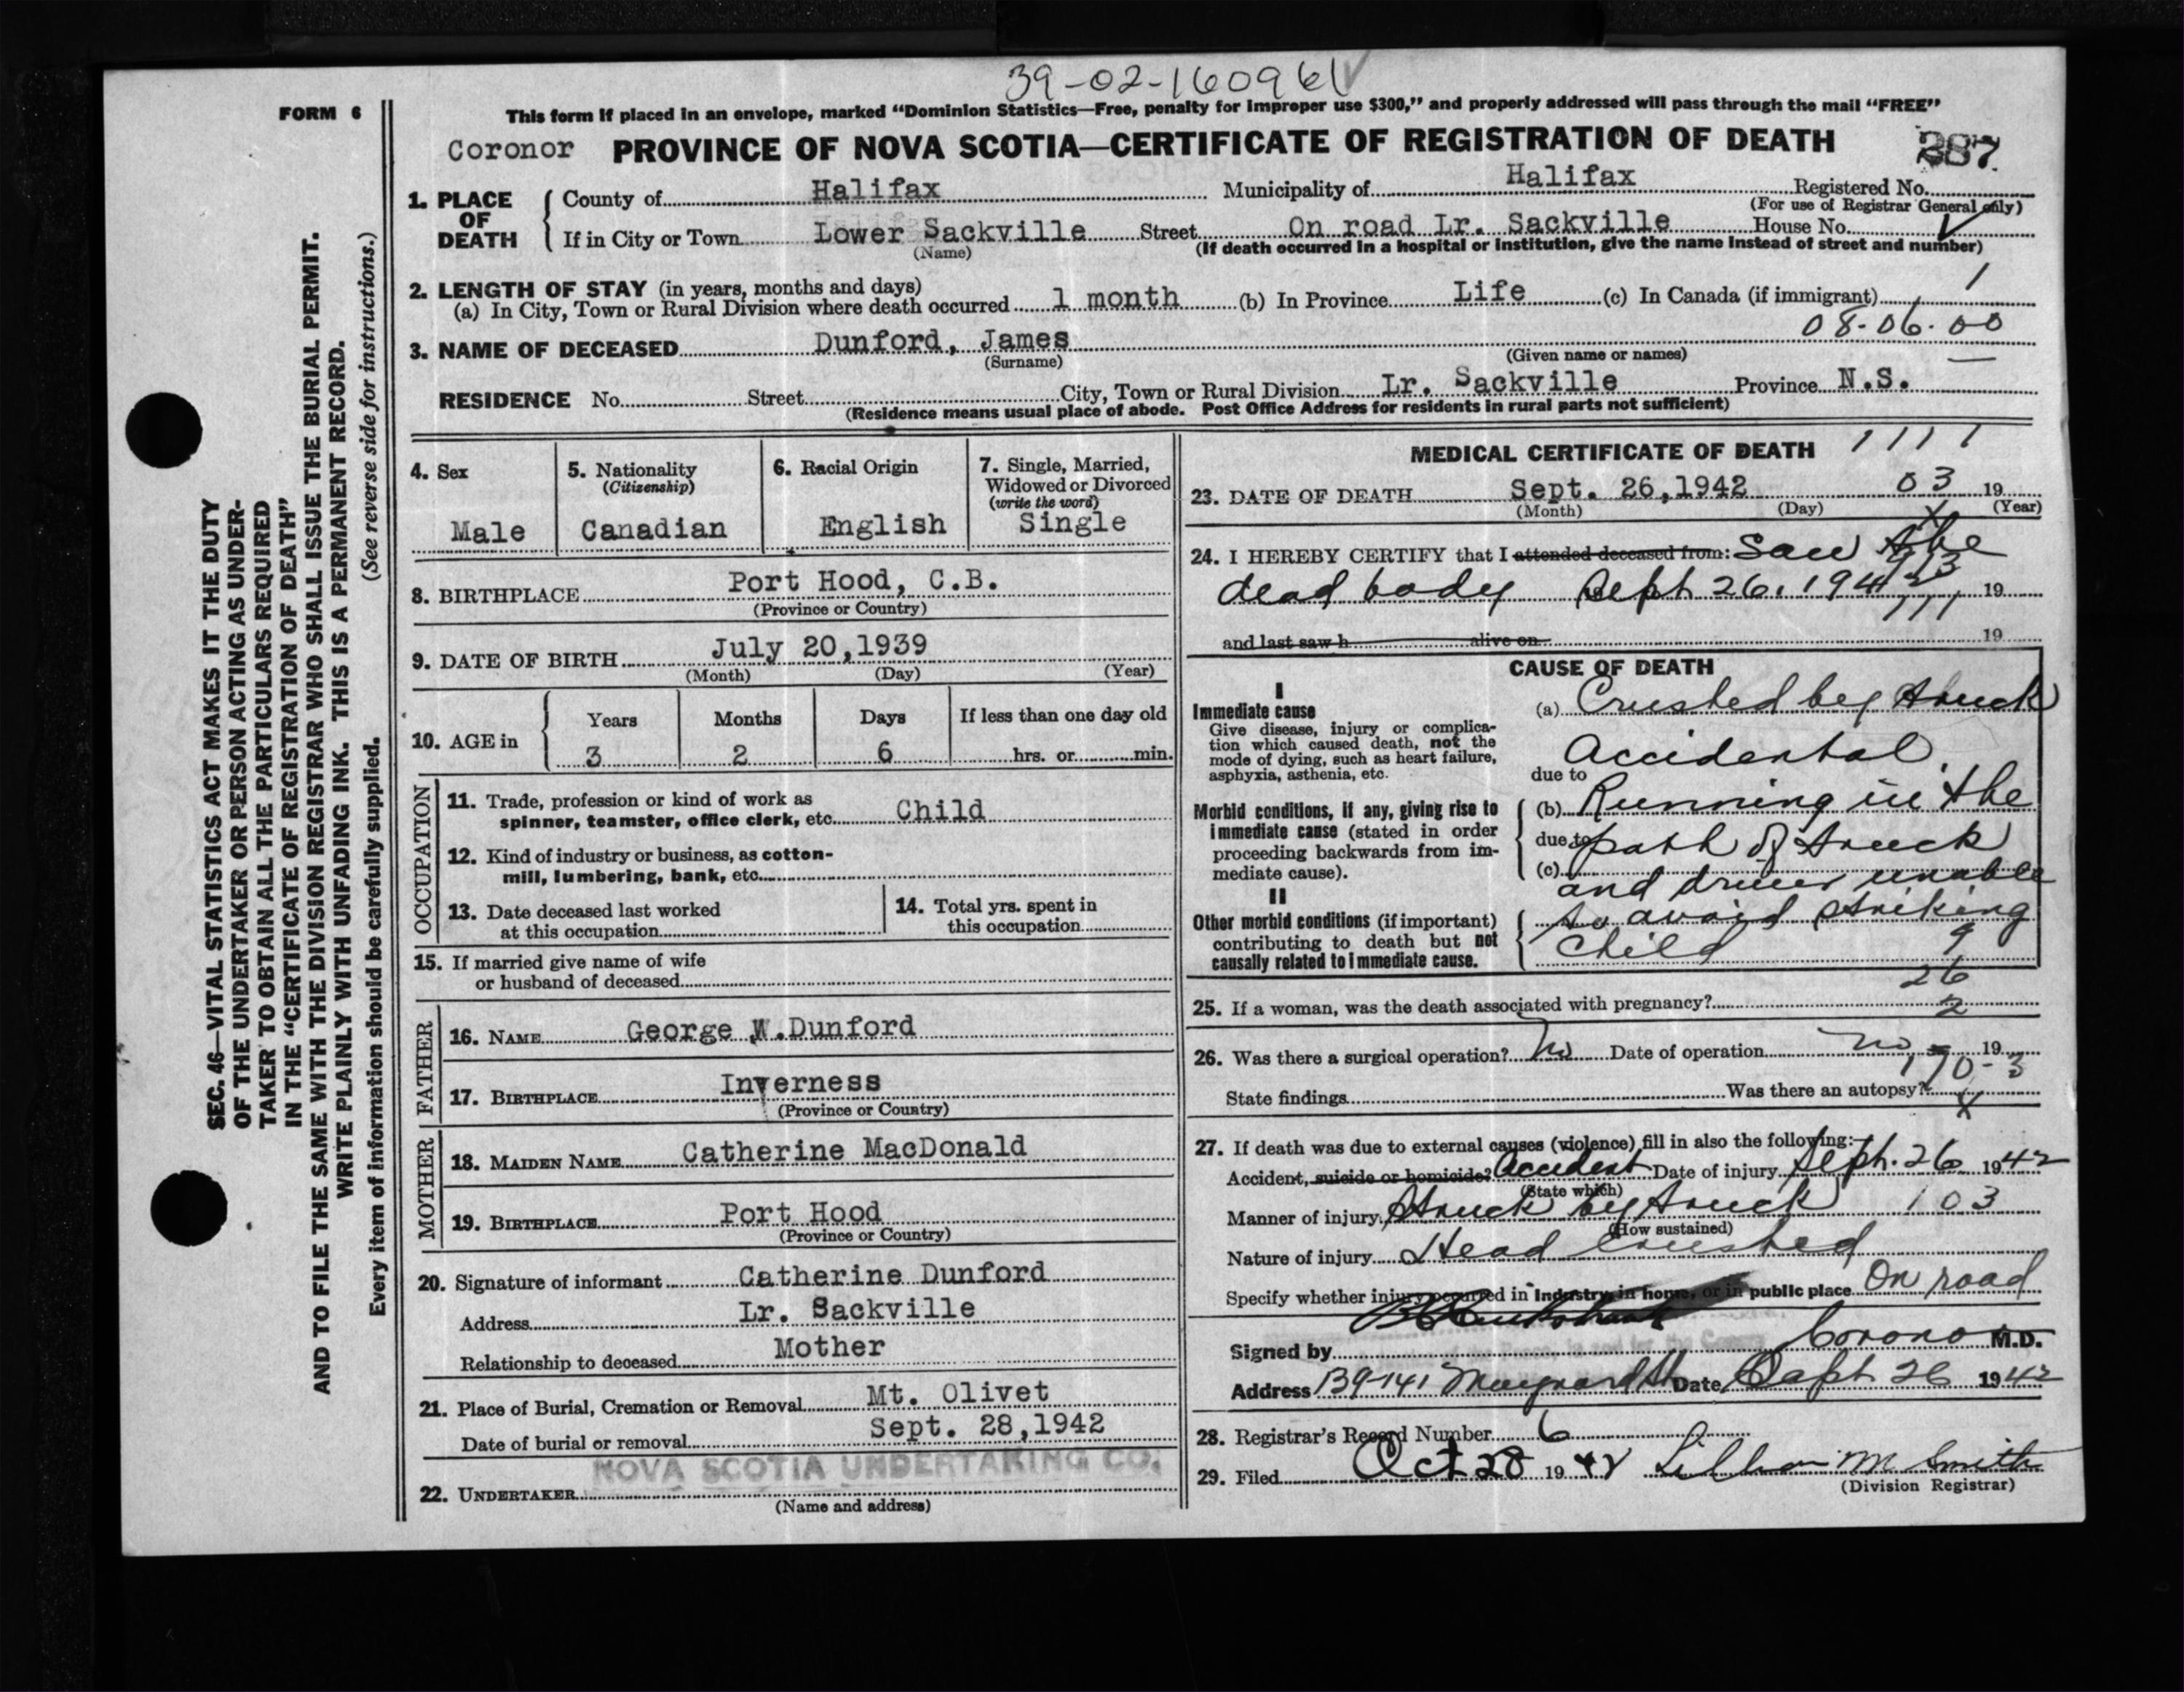 39-02-160961
FORM 6
This form if placed in an envelope, marked “Dominion Statistics—Free, penalty for improper use $300,” and properly addressed will pass through the mail “FREE”
Coronor PROVINCE OF NOVA SCOTIA—CERTIFICATE OF REGISTRATION OF DEATH 387
1. PLACE OF DEATH
County of Halifax Municipality of Halifax Registered No.
(For use of Registrar General only)
If in City or Town Lower Sackville Street On road Lr. Sackville House No.
(Name) (If death occurred in a hospital or institution, give the name instead of street and number)
2. LENGTH OF STAY (in years, months and days)
(a) In City, Town or Rural Division where death occurred 1 month (b) In Province Life (c) In Canada (if immigrant)
08-06-00
3. NAME OF DECEASED Dunford, James
(Surname) (Given name or names)
RESIDENCE No. Street City, Town or Rural Division Lr. Sackville Province N.S.
(Residence means usual place of abode. Post Office Address for residents in rural parts not sufficient)
SEC. 46—VITAL STATISTICS ACT MAKES IT THE DUTY
OF THE UNDERTAKER OR PERSON ACTING AS UNDER-
TAKER TO OBTAIN ALL THE PARTICULARS REQUIRED
IN THE “CERTIFICATE OF REGISTRATION OF DEATH”
AND TO FILE THE SAME WITH THE DIVISION REGISTRAR WHO SHALL ISSUE THE BURIAL PERMIT.
WRITE PLAINLY WITH UNFADING INK. THIS IS A PERMANENT RECORD.
Every item of information should be carefully supplied. (See reverse side for instructions.)
4. Sex
Male
5. Nationality
(Citizenship)
Canadian
6. Racial Origin
English
7. Single, Married,
Widowed or Divorced
(write the word)
Single
8. BIRTHPLACE Port Hood, C.B.
(Province or Country)
9. DATE OF BIRTH July 20,1939
(Month) (Day) (Year)
10. AGE in
Years Months Days If less than one day old
3 2 6 hrs. or min.
OCCUPATION
11. Trade, profession or kind of work as
spinner, teamster, office clerk, etc. Child
12. Kind of industry or business, as cotton-
mill, lumbering, bank, etc.
13. Date deceased last worked
at this occupation
14. Total yrs. spent in
this occupation
15. If married give name of wife
or husband of deceased
FATHER
16. NAME George W.Dunford
17. BIRTHPLACE Inverness
(Province or Country)
MOTHER
18. MAIDEN NAME Catherine MacDonald
19. BIRTHPLACE Port Hood
(Province or Country)
20. Signature of informant Catherine Dunford
Address Lr. Sackville
Relationship to deceased Mother
21. Place of Burial, Cremation or Removal Mt. Olivet
Date of burial or removal Sept. 28,1942
NOVA SCOTIA UNDERTAKING CO.
22. UNDERTAKER
(Name and address)
MEDICAL CERTIFICATE OF DEATH 1111
23. DATE OF DEATH Sept. 26,1942 03 19
(Month) (Day) (Year)
24. I HEREBY CERTIFY that I attended deceased from: Saw the
dead body Sept 26. 1942 19
111
and last saw h alive on 19
CAUSE OF DEATH
I
Immediate cause
Give disease, injury or complica-
tion which caused death, not the
mode of dying, such as heart failure,
asphyxia, asthenia, etc.
(a) Crushed by truck
Accidental.
due to
Morbid conditions, if any, giving rise to
immediate cause (stated in order
proceeding backwards from im-
mediate cause).
(b) Running in the
due to path of truck
(c) and driver unable
II
Other morbid conditions (if important)
contributing to death but not
causally related to immediate cause.
to avoid striking
child 9
26
25. If a woman, was the death associated with pregnancy? 2
26. Was there a surgical operation? No Date of operation no 19
170-3
State findings Was there an autopsy? X
27. If death was due to external causes (violence) fill in also the following:
Accident, suicide or homicide? Accident Date of injury Sept. 26 1942
(State which)
Manner of injury Struck by truck 103
(How sustained)
Nature of injury Head crushed
Specify whether injury occurred in Industry, in home, or in public place On road
Signed by Coronor M.D.
Address 139-141 Maynard St Date Sept 26 1942
28. Registrar's Record Number 6
29. Filed Oct 28 1942 Lillian M Smith
(Division Registrar)